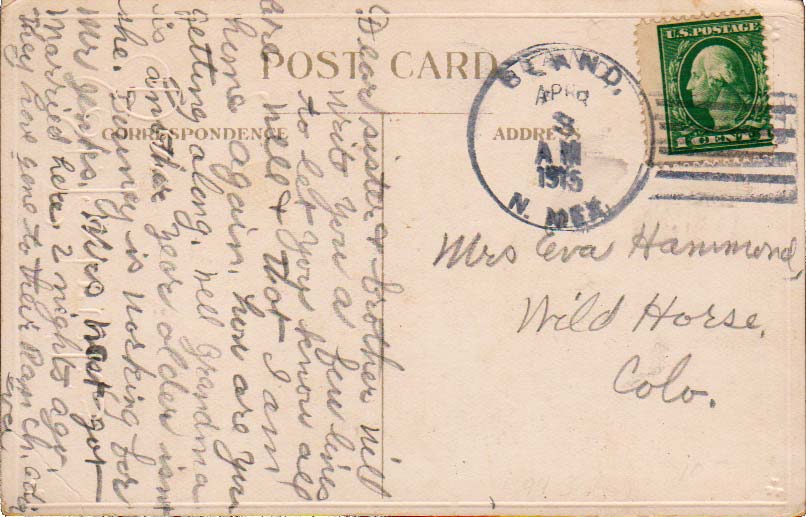 POST CARD
CORRESPONDENCE
ADDRESS
U.S. POSTAGE
1 CENT 1
BLAND,
APR
3
AM
1915
N. MEX.
Mrs Eva Hammond,
Wild Horse,
Colo.
Dear sister & brother will
write you a few lines
to let yoys know all
are well & that I am
home again. how are you
getting along. well grandma
is another year older isnt
she. Denney is working for
Mr
Mrs got
married here 2 nights ago.
They have gone to their Ranch.